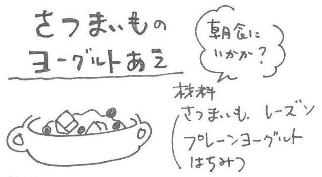 さつまいもの
ヨーグルトあえ
朝食に
いかが?
材料
さつまいも、レーズン
プレーンヨーグルト
はちみつ